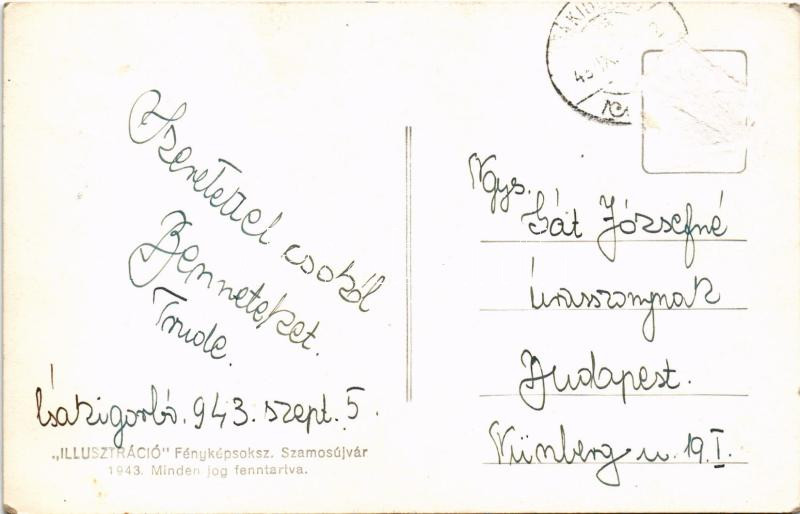 Szeretettel csókol
Benneteket.
Trude.
Csákigorbó. 943. szept. 5.
„ILLUSZTRÁCIÓ" Fényképsoksz. Szamosújvár
1943. Minden jog fenntartva.
Ngys.
Gát Józsefné
Úrasszonynak
Budapest.
Nürnberg u. 19. I.